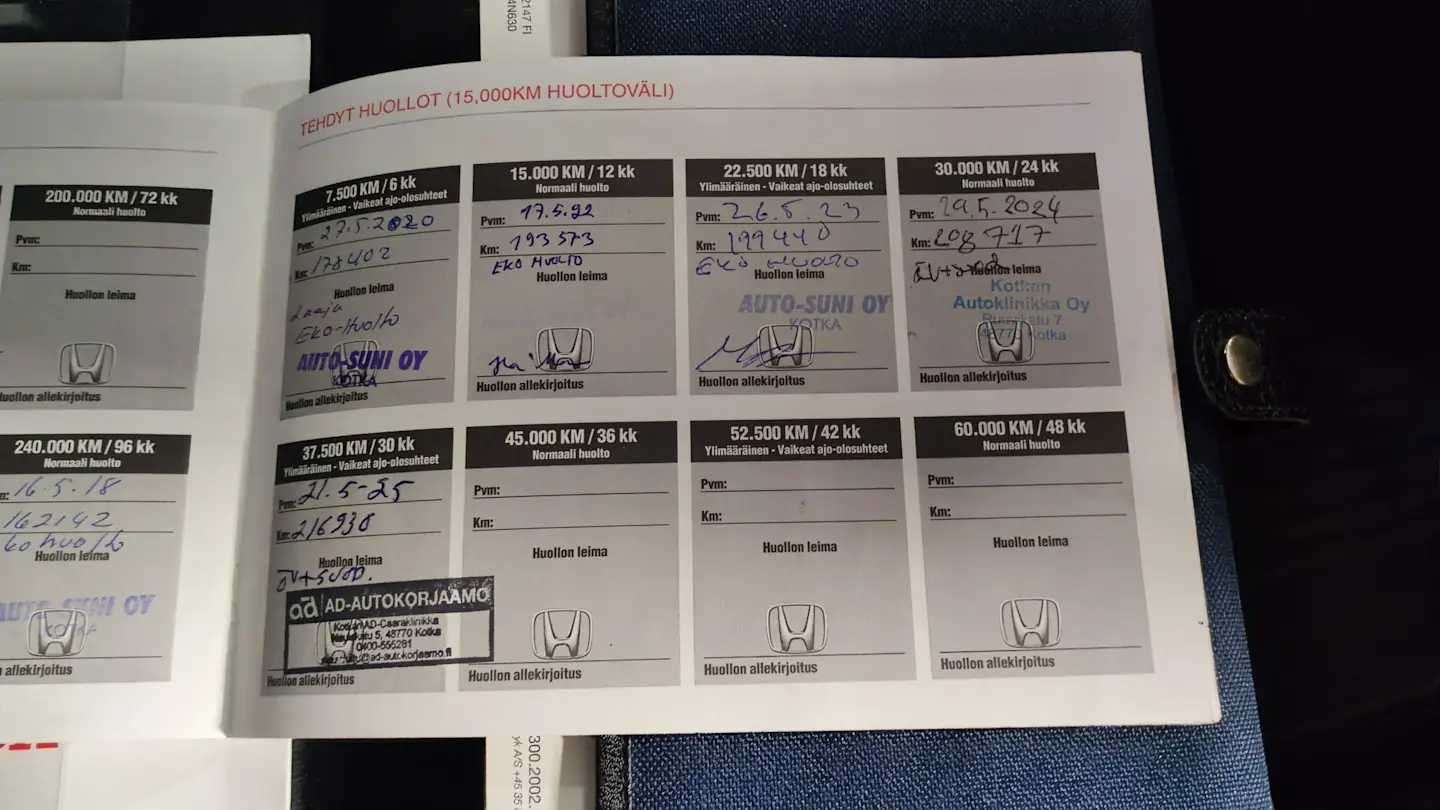 2147 FI
4N630
TEHDYT HUOLLOT (15,000KM HUOLTOVÄLI)
200.000 KM / 72 kk
Normaali huolto
Pvm:
Km:
Huollon leima
Huollon allekirjoitus
240.000 KM / 96 kk
Normaali huolto
16.5.18
162142
Huollon leima
AUTO-SUNI OY
KOTKA
allekirjoitus
7.500 KM / 6 kk
Ylimääräinen - Vaikeat ajo-olosuhteet
Pvm: 27.5.2020
Km: 178402
Huollon leima
Laaja
Eko-Huolto
AUTO-SUNI OY
KOTKA
Huollon allekirjoitus
15.000 KM / 12 kk
Normaali huolto
Pvm: 17.5.22
Km: 193573
EKO HUOLTO
Huollon leima
Huollon allekirjoitus
22.500 KM / 18 kk
Ylimääräinen - Vaikeat ajo-olosuhteet
Pvm: 26.5.23
Km: 199440
EKO HUOLTO
Huollon leima
AUTO-SUNI OY
KOTKA
Huollon allekirjoitus
30.000 KM / 24 kk
Normaali huolto
Pvm: 29.5.2024
Km: 208717
Huollon leima
Kotkan
Autoklinikka Oy
48770 Kotka
Huollon allekirjoitus
37.500 KM / 30 kk
Ylimääräinen - Vaikeat ajo-olosuhteet
Pvm: 21.5-25
Km: 216930
Huollon leima
ÖV+SUOD.
ad AD-AUTOKORJAAMO
5, 48770 Kotka
0400-555281
ad-autokorjaamo.fi
Huollon allekirjoitus
45.000 KM / 36 kk
Normaali huolto
Pvm:
Km:
Huollon leima
Huollon allekirjoitus
52.500 KM / 42 kk
Ylimääräinen - Vaikeat ajo-olosuhteet
Pvm:
Km:
Huollon leima
Huollon allekirjoitus
60.000 KM / 48 kk
Normaali huolto
Pvm:
Km:
Huollon leima
Huollon allekirjoitus
300.2002.
yk A/S +45 35